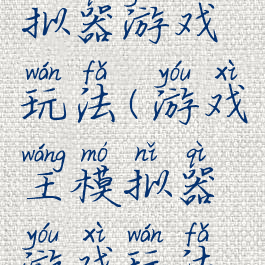 拟器游戏
wán fǎ yóu xì
玩法(游戏
wáng mó nǐ qì
王模拟器
yóu xì wán fǎ
游戏玩法